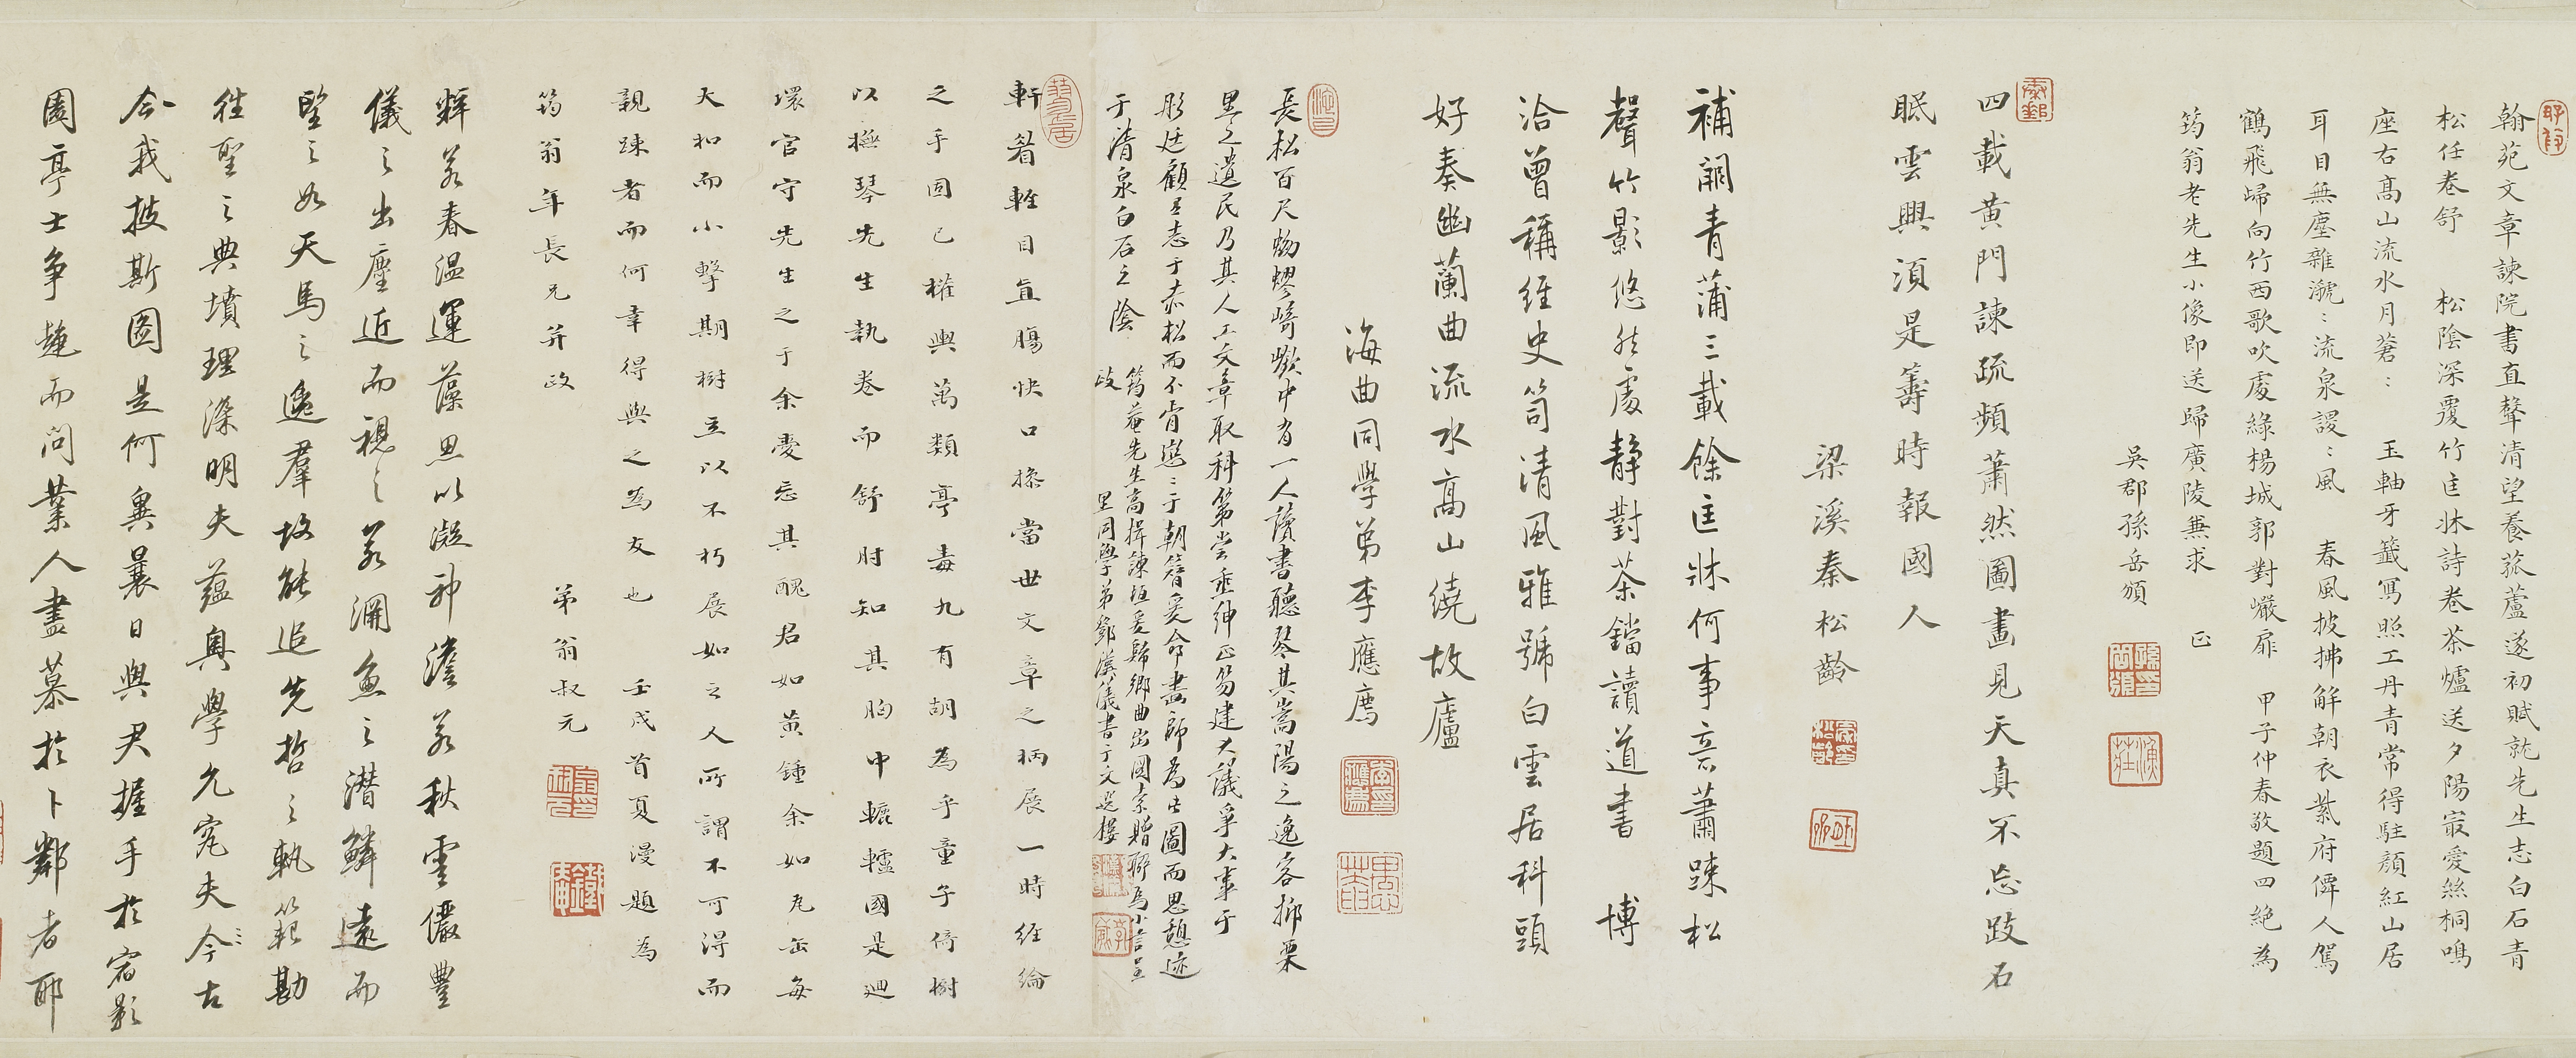 翰苑文章諫院書直聲清望養菰蘆遂初賦就先生志白石青
松任卷舒 松陰深覆竹匡牀詩卷茶爐送夕陽寂愛絲桐鳴
座右高山流水月蒼〻 玉軸牙籤寫照工丹青常得駐顏紅山居
耳目無塵雜瀧〻流泉謖〻風 春風披拂解朝衣紫府僊人駕
鶴飛歸向竹西歌吹處綠楊城郭對巖扉 甲子仲春敬題四絕為
筠翁老先生小像即送歸廣陵兼求 正
吳郡孫岳頒
四載黃門諫疏頻蕭然圖畫見天真不忘跂石
眠雲興須是籌時報國人
梁溪秦松齡
補闕青蒲三載餘匡牀何事意蕭疎松
聲竹影悠然處靜對茶鐺讀道書 博
洽曾稱經史笥清風雅號白雲居科頭
好奏幽蘭曲流水高山繞故廬
海曲同學弟李應廌
長松百尺蟉崎嶔中有一人讀書聽琴其嵩陽之逸客抑栗
里之遺民乃其人工文章取科第嘗垂紳正笏建大議爭大事于
彤廷顧其志于赤松而不肯戀〻于朝簪爰命畫師為此圖而思憩迹
于清泉白石之陰
筠菴先生高揖諫垣爰歸鄉曲出圖索贈聊為小言呈
政 里同學弟鄧漢儀書于文選樓
軒眉輊目直腸快口操當世文章之柄展一時經綸
之手固已權輿萬類亭毒九有胡為乎童子倚樹
以橅琴先生執卷而舒肘知其胸中轆轤國是迴
環官守先生之于余憂忘其醜君如黃鍾余如瓦缶每
大和而小擊期樹立以不朽展如之人所謂不可得而
親踈者而何幸得與之為友也 壬戌首夏漫題為
筠翁年長兄并政
弟翁叔元
輝若春溫運藻思以凝神澹若秋雲儼豐
儀之出塵近而視之若淵魚之潛鱗遠而
望之如天馬之逸群故能追先哲之軌範勘
往聖之典墳理深明夫蘊奧學允究夫今古
今我披斯圖是何異曩日與尹握手於宿影
園亭士爭趨而問業人盡慕於卜鄰者耶